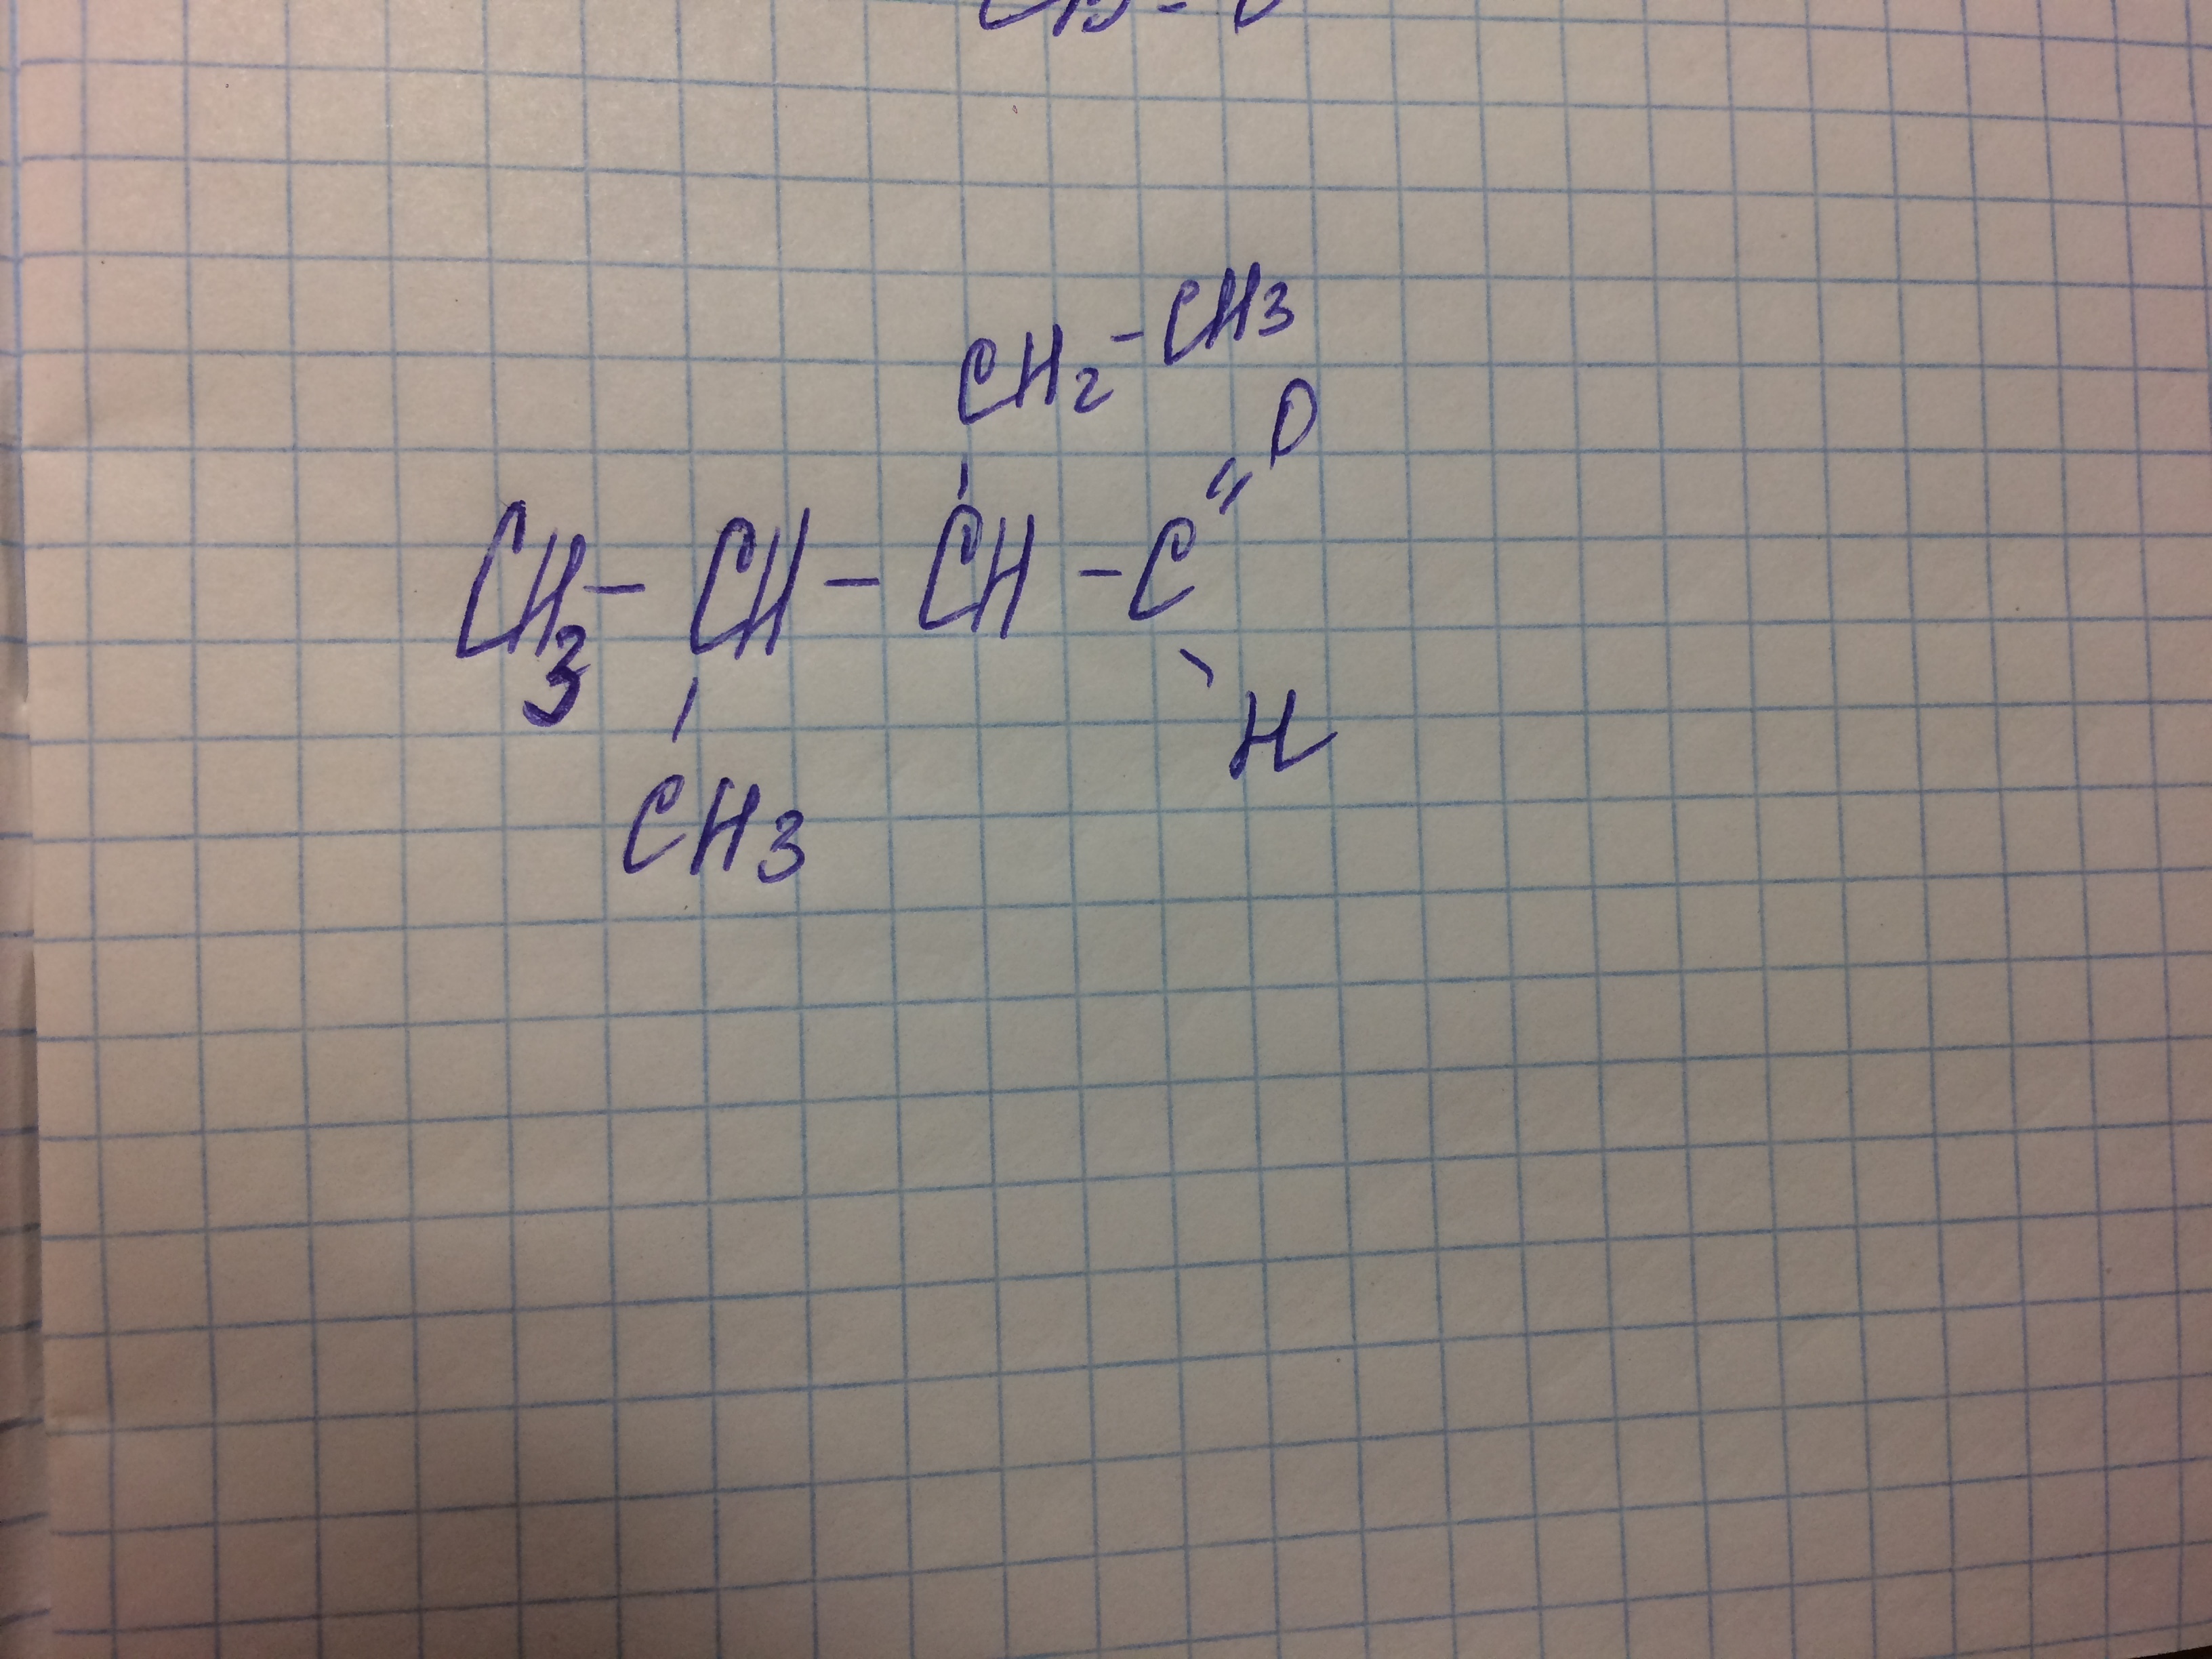 CH2-CH3
O
CH3-CH-CH-C
H
CH3